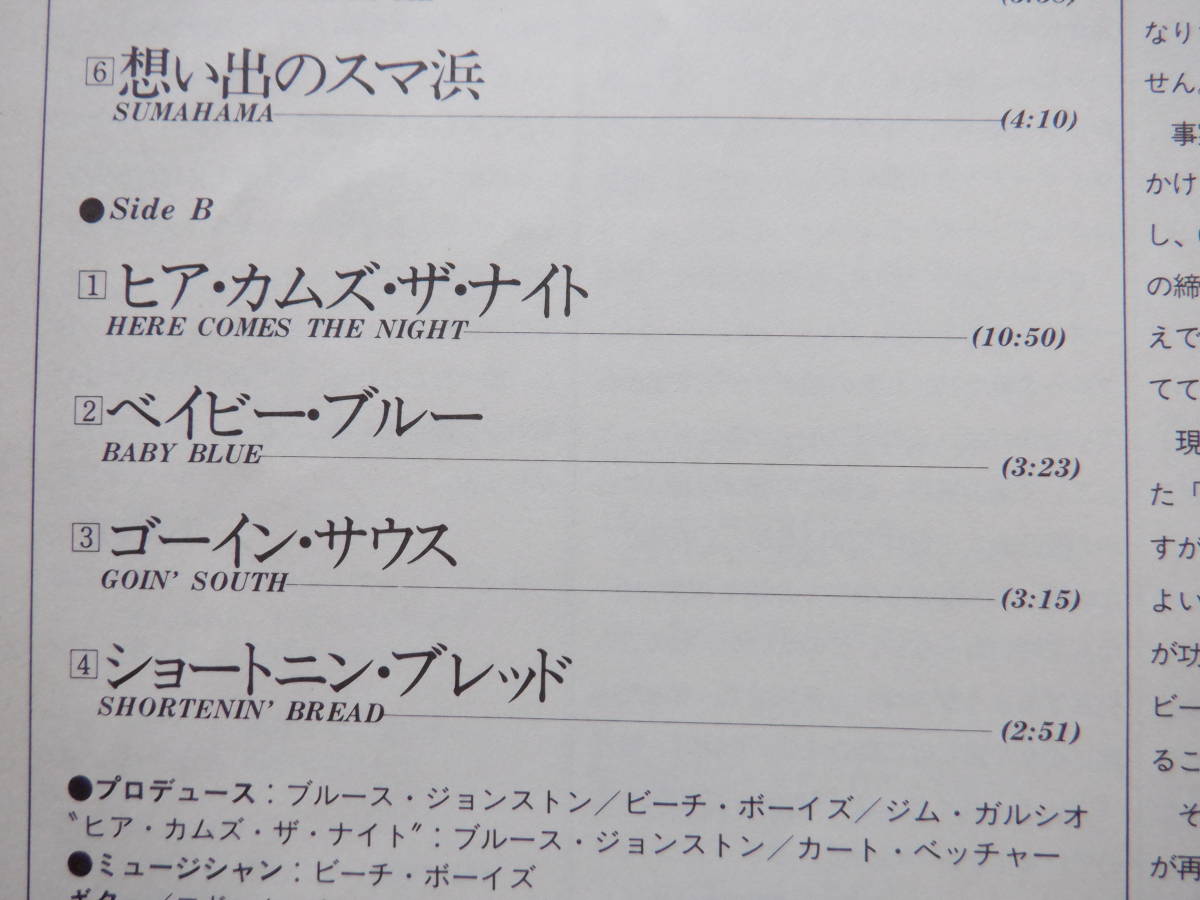 6 想い出のスマ浜
SUMAHAMA (4:10)
●Side B
1 ヒア・カムズ・ザ・ナイト
HERE COMES THE NIGHT (10:50)
2 ベイビー・ブルー
BABY BLUE (3:23)
3 ゴーイン・サウス
GOIN' SOUTH (3:15)
4 ショートニン・ブレッド
SHORTENIN' BREAD (2:51)
●プロデュース：ブルース・ジョンストン／ビーチ・ボーイズ／ジム・ガルシオ
〝ヒア・カムズ・ザ・ナイト〟：ブルース・ジョンストン／カート・ベッチャー
●ミュージシャン：ビーチ・ボーイズ
なり
せん。
かけ
し、
の締
えで
てて
現
た「
すが
よい
が功
ビー
るこ
そ
が再